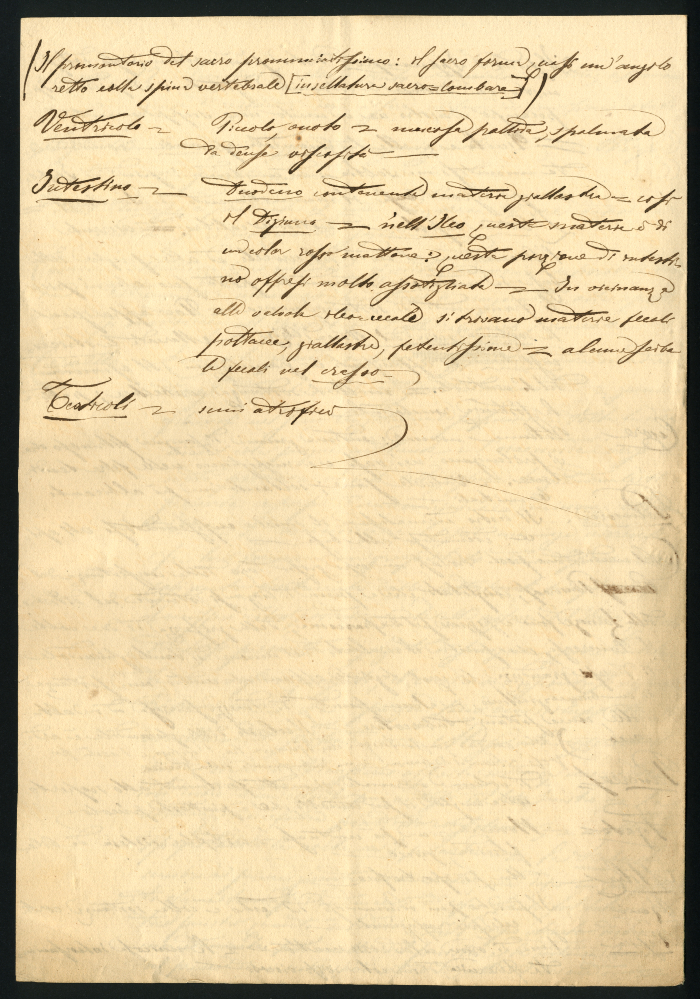 (Il promontorio del sacro prominentissimo: il sacro forma quasi un'angolo
retto colla spina vertebrale [insellatura sacro=lombare])
Ventricolo = Piccolo, vuoto = mucosa pallida, spalmata
da densa viscosità —
Intestino = Duodeno contenente materia giallastra = così
il Digiuno = nell'Ileo questa materia è di
un color rosso mattone: questa porzione di intesti-
no offresi molto assottigliata = In vicinanza
alla valvola ileo-cecale si trovano materie fecali
poltacee, giallastre, fetentissime = alcune scibale
fecali nel crasso —
Testicoli = semi atrofici